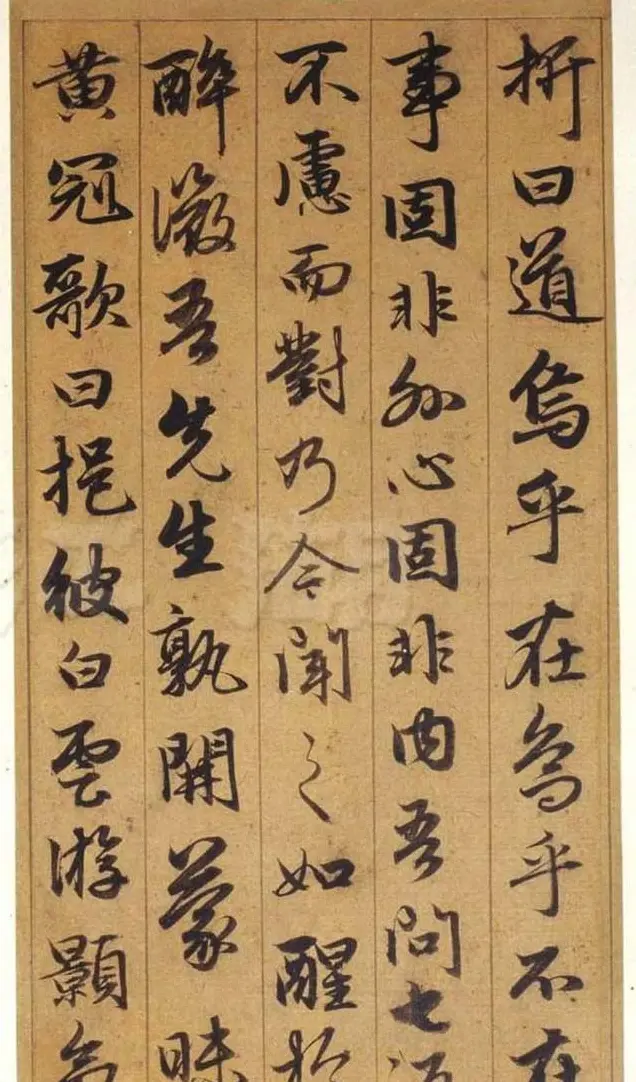 折曰道烏乎在烏乎不在
事固非外心固非内吾問七
不慮而對乃今聞之如醒於
醉微吾先生孰開蒙昧
黄冠歌曰挹彼白雲游顥